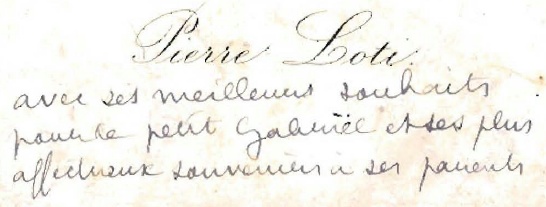 Pierre Loti.
avec ses meilleurs souhaits
pour le petit Gabriël et ses plus
affectueux souvenirs à ses parents